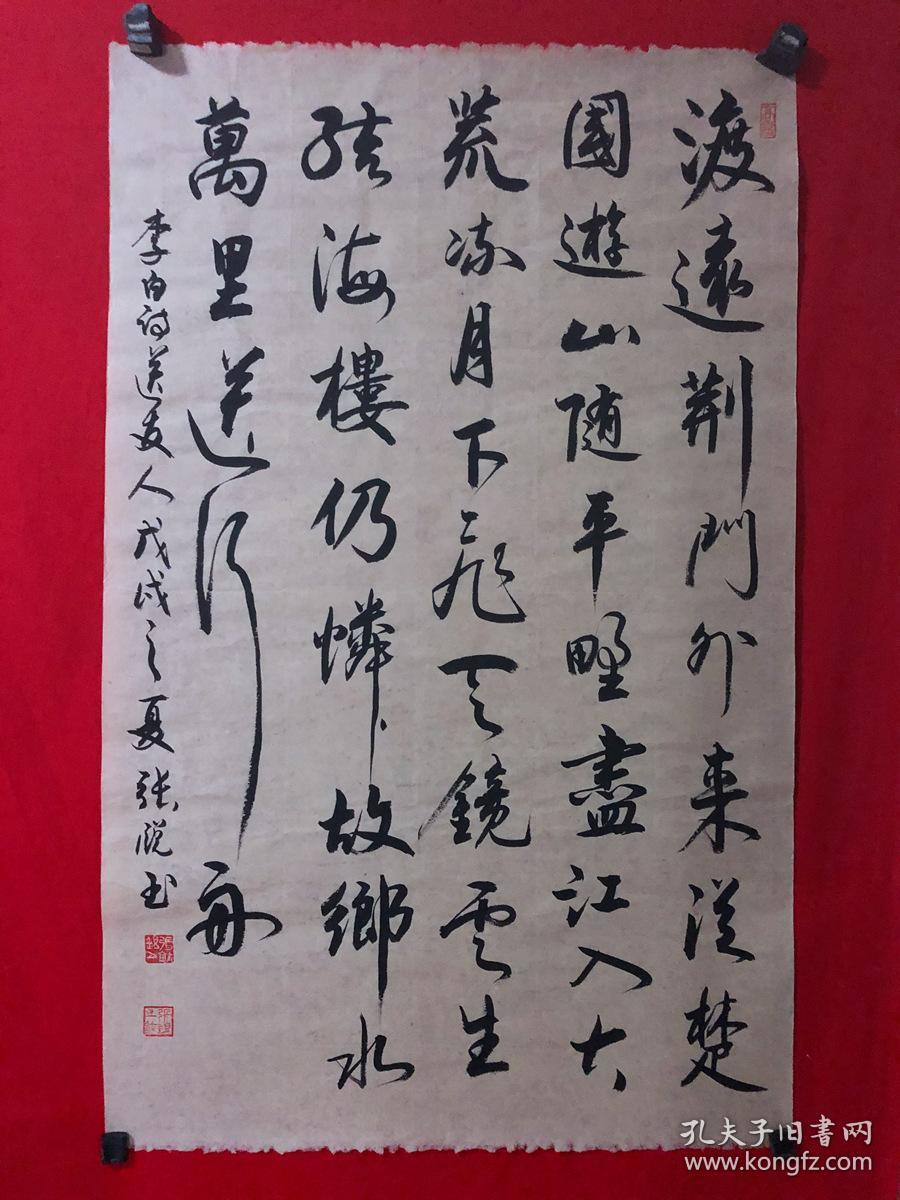 渡遠荆門外来從楚
國遊山随平野盡江入大
荒流月下飛天鏡雲生
结海樓仍憐故鄉水
萬里送行舟
李白诗送友人戊戌之夏张书
孔夫子旧書网
www.kongfz.com